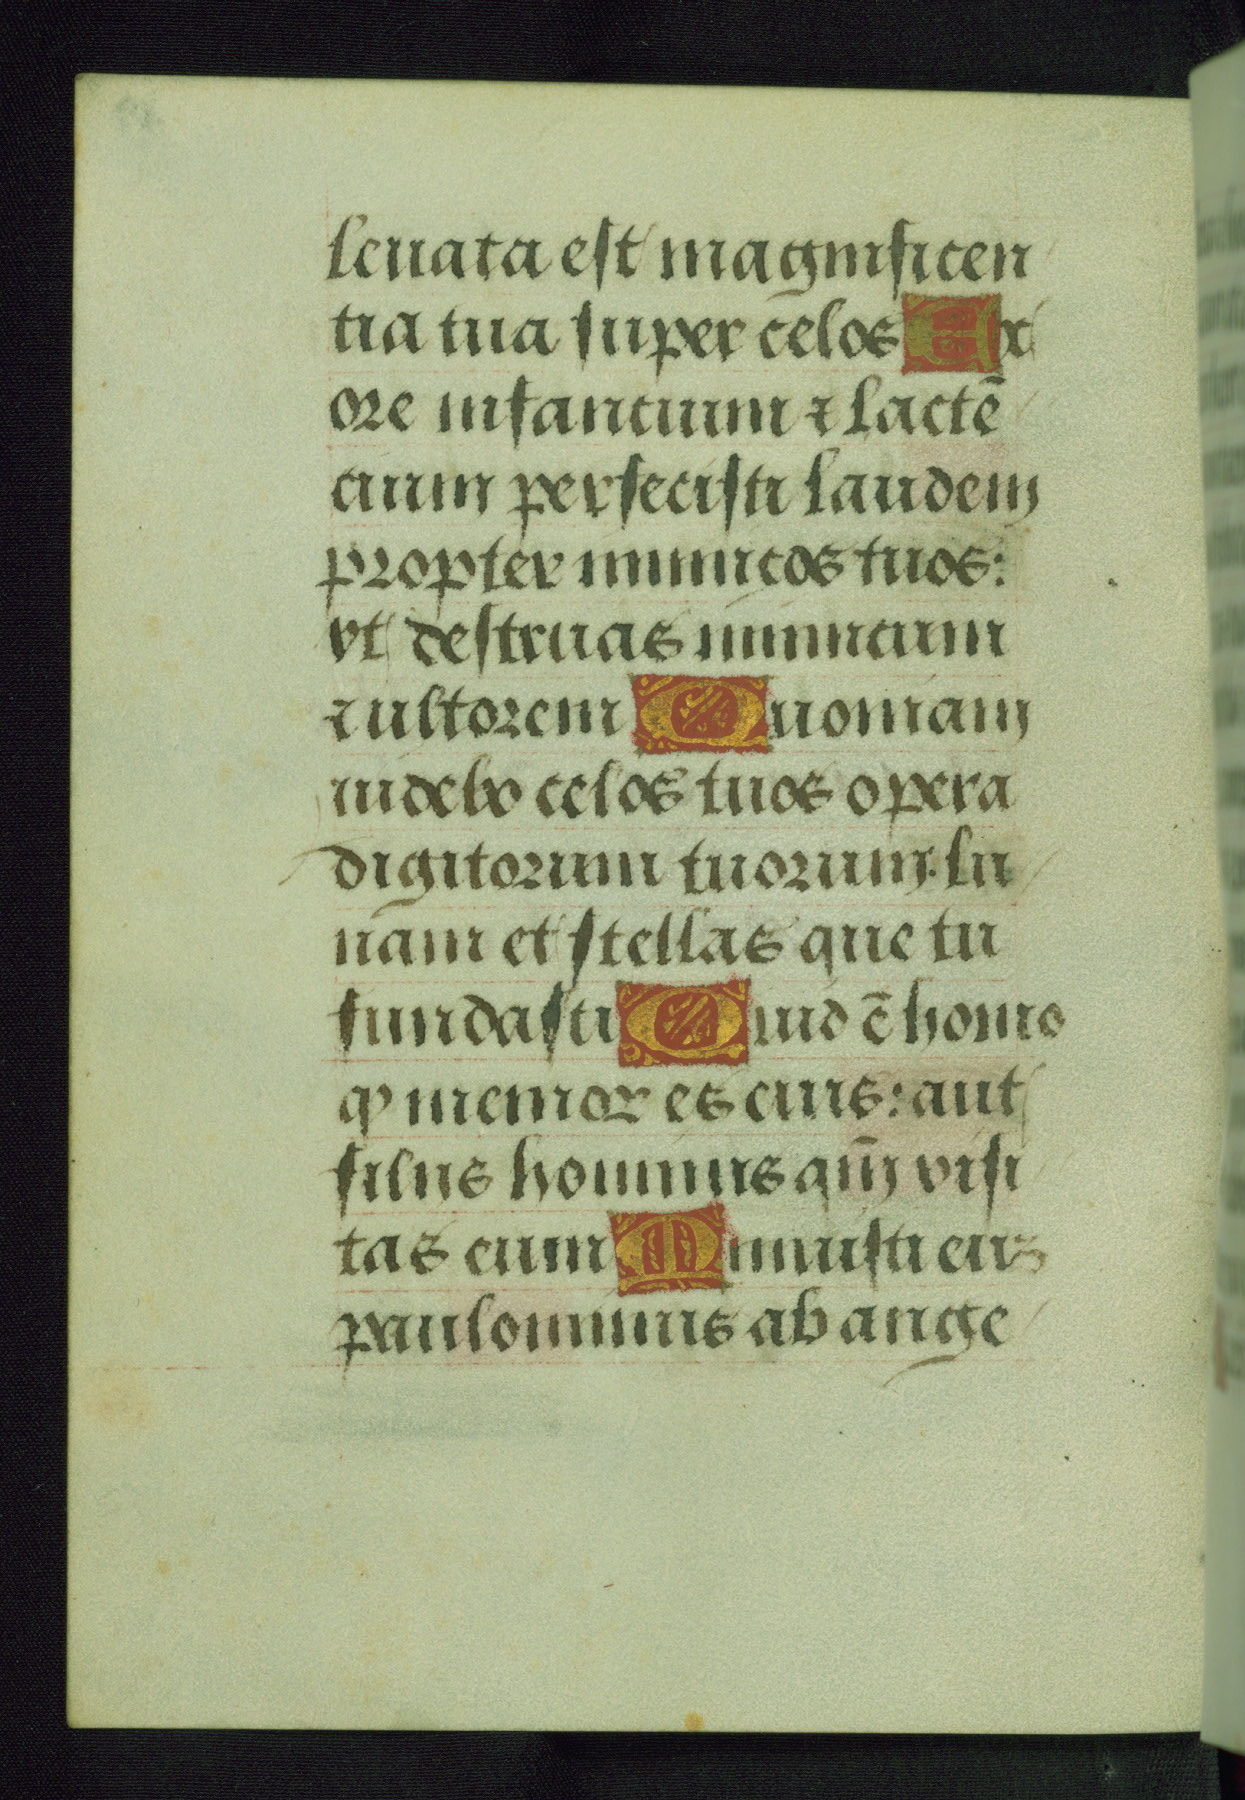 leuata est magnificen
tia tua super celos Ex
ore infantium ⁊ lactē
tium perfecisti laudem
propter inimicos tuos:
vt destruas inimicum
⁊ ultorem Quoniam
uidebo celos tuos opera
digitorum tuorum. lu
nam et stellas que tu
fundasti Quid ē homo
ꝙ memor es eius: aut
filius hominis qm̄ visi
tas eum Minuisti eum
paulominus ab ange